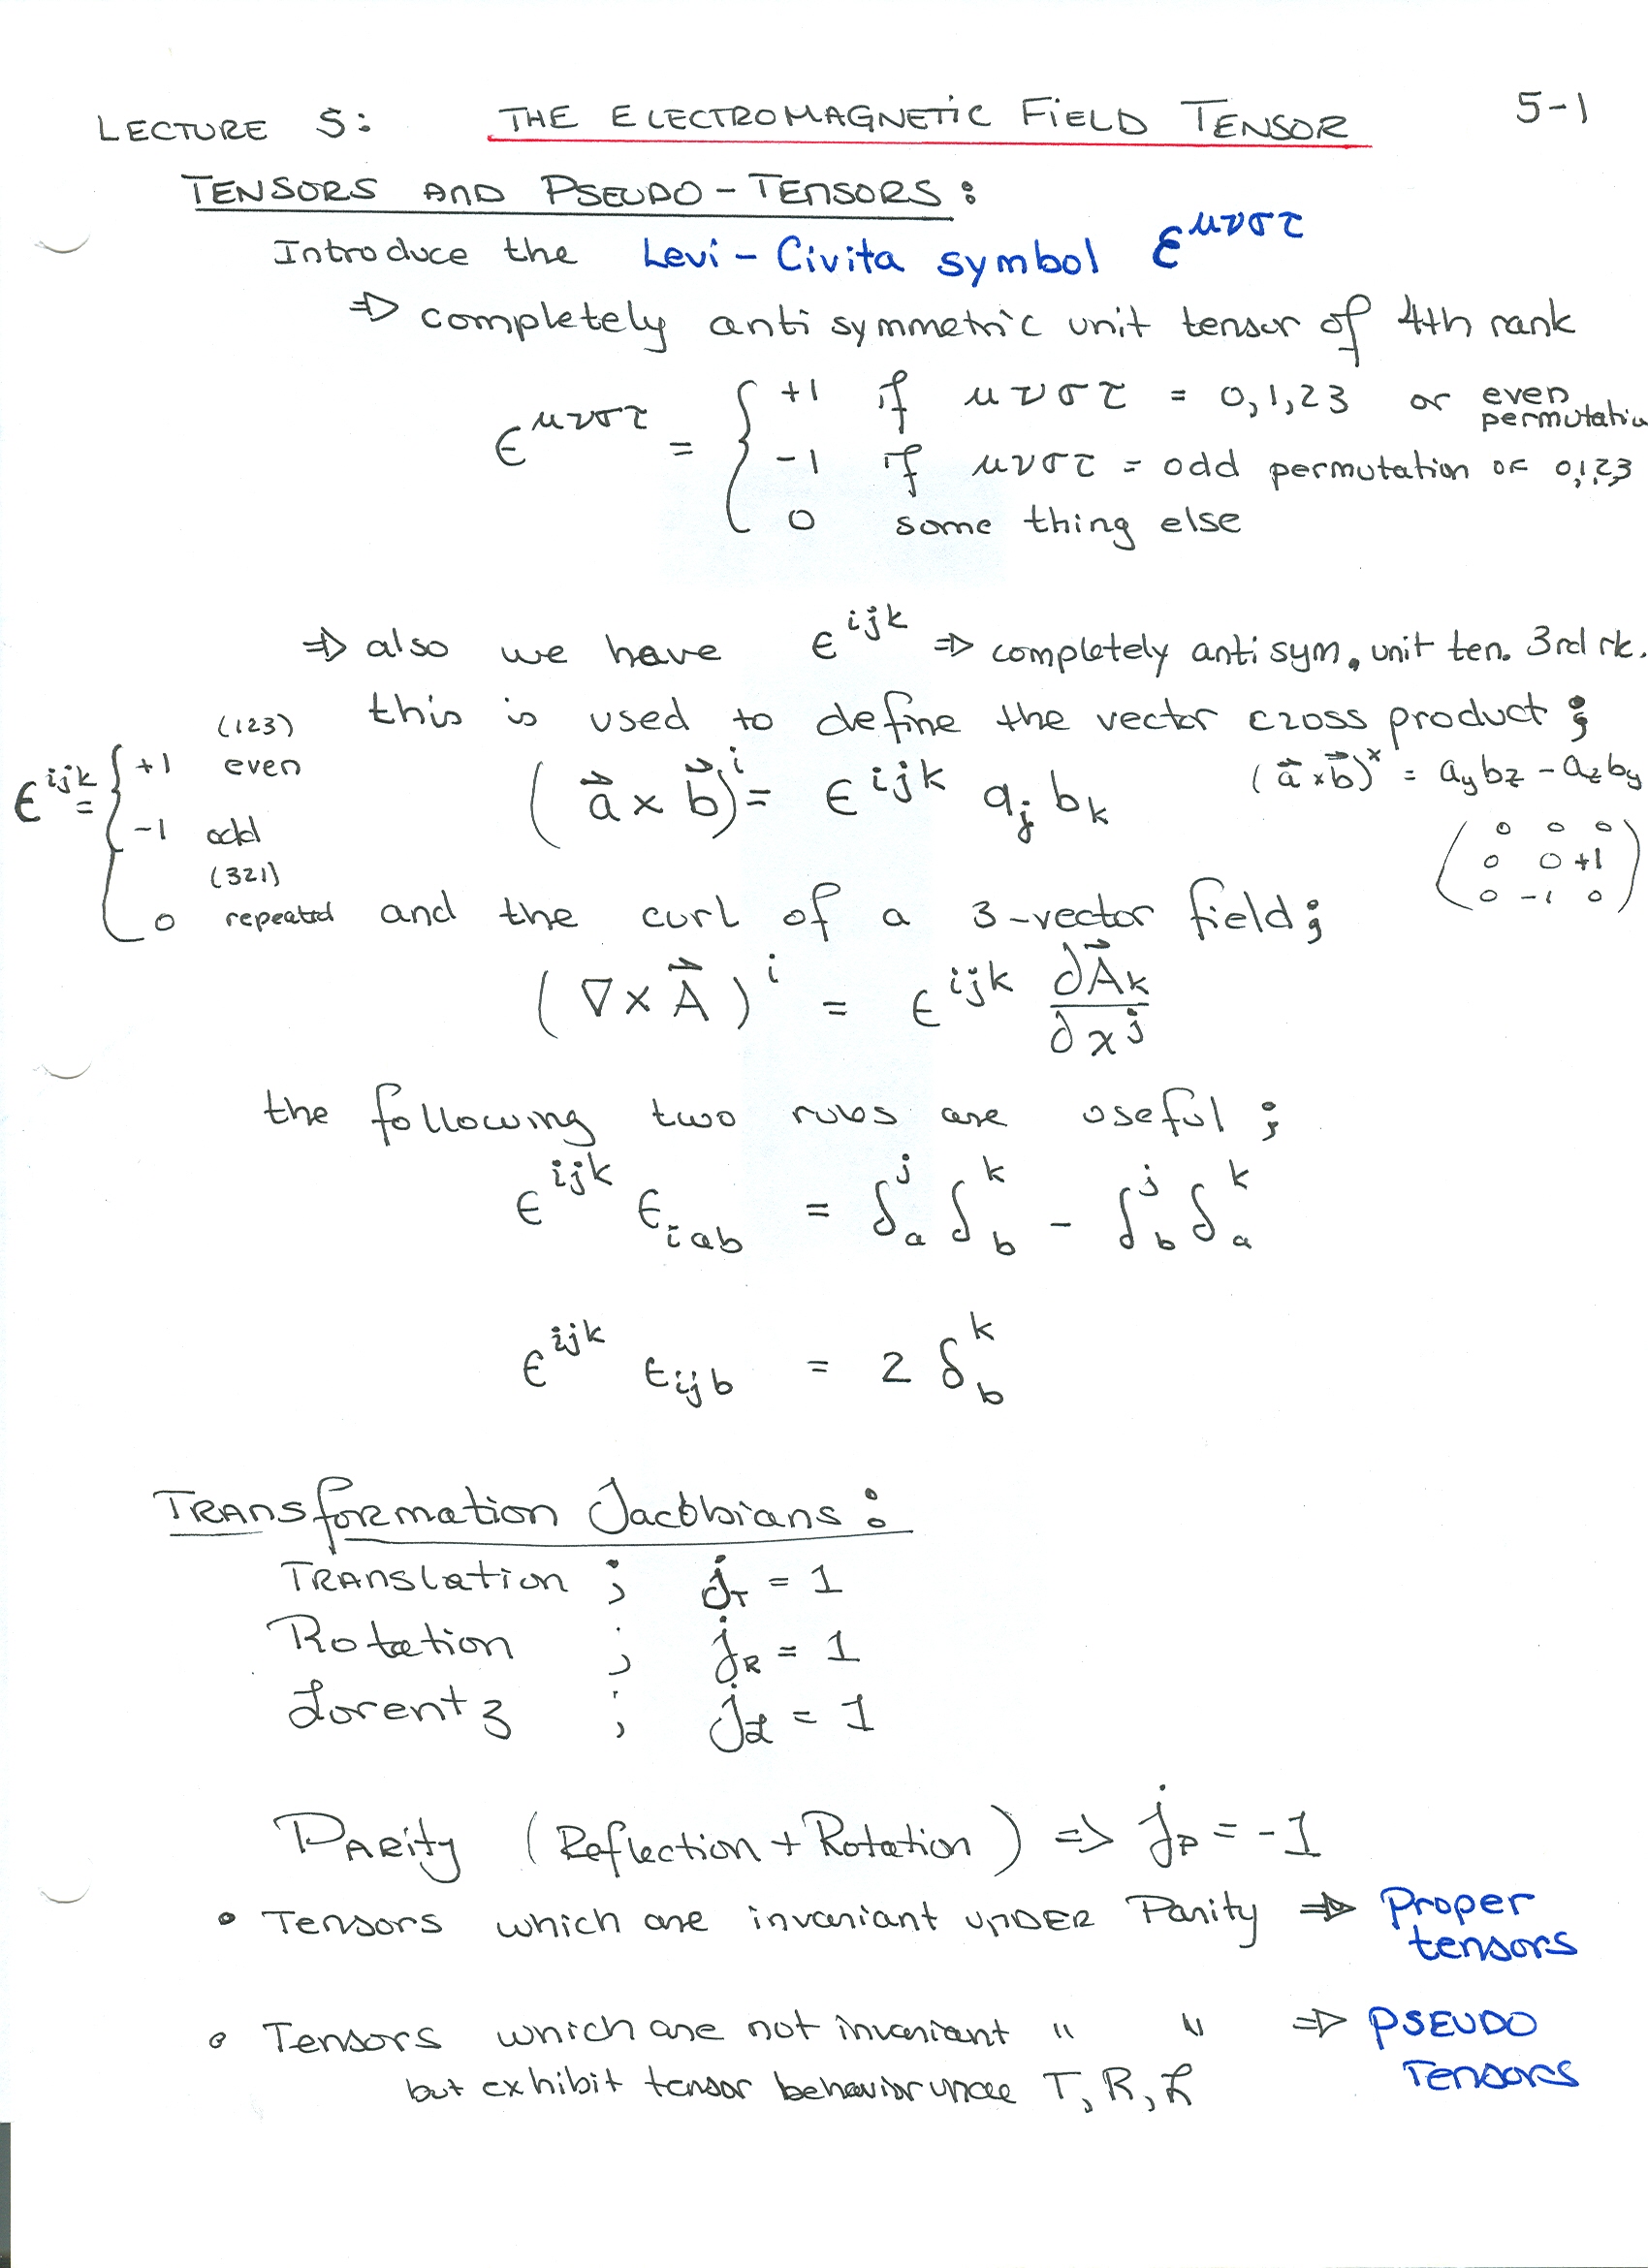 LECTURE 5: THE ELECTROMAGNETIC FIELD TENSOR 5-1
TENSORS AND PSEUDO-TENSORS:
Introduce the Levi-Civita symbol ε^{μνστ}
⇒ completely antisymmetric unit tensor of 4th rank
ε^{μνστ} = { +1 if μνστ = 0,1,23 or even permutatio
-1 if μνστ = odd permutation OF 0,1,23
0 some thing else
⇒ also we have ε^{ijk} ⇒ completely antisym. unit ten. 3rd rk.
this is used to define the vector cross product;
ε^{ijk} = { +1 even (123)
-1 odd (321)
0 repeated
(a⃗ × b⃗)^i = ε^{ijk} a_j b_k
(a⃗ × b⃗)^x = a_y b_z - a_z b_y
( 0 0 0
0 0 +1
0 -1 0 )
and the curl of a 3-vector field;
(∇ × A⃗)^i = ε^{ijk} ∂A⃗_k / ∂x^j
the following two rules are useful;
ε^{ijk} ε_{iab} = δ^j_a δ^k_b - δ^j_b δ^k_a
ε^{ijk} ε_{ijb} = 2 δ^k_b
TRANSformation Jacobians:
TRANSlation ; j_T = 1
Rotation ; j_R = 1
Lorentz ; j_L = 1
PARity (Reflection + Rotation) ⇒ j_P = -1
• Tensors which are invariant UNDER Parity ⇒ Proper tensors
• Tensors which are not invariant " " ⇒ PSEUDO Tensors
but exhibit tensor behavior under T, R, L